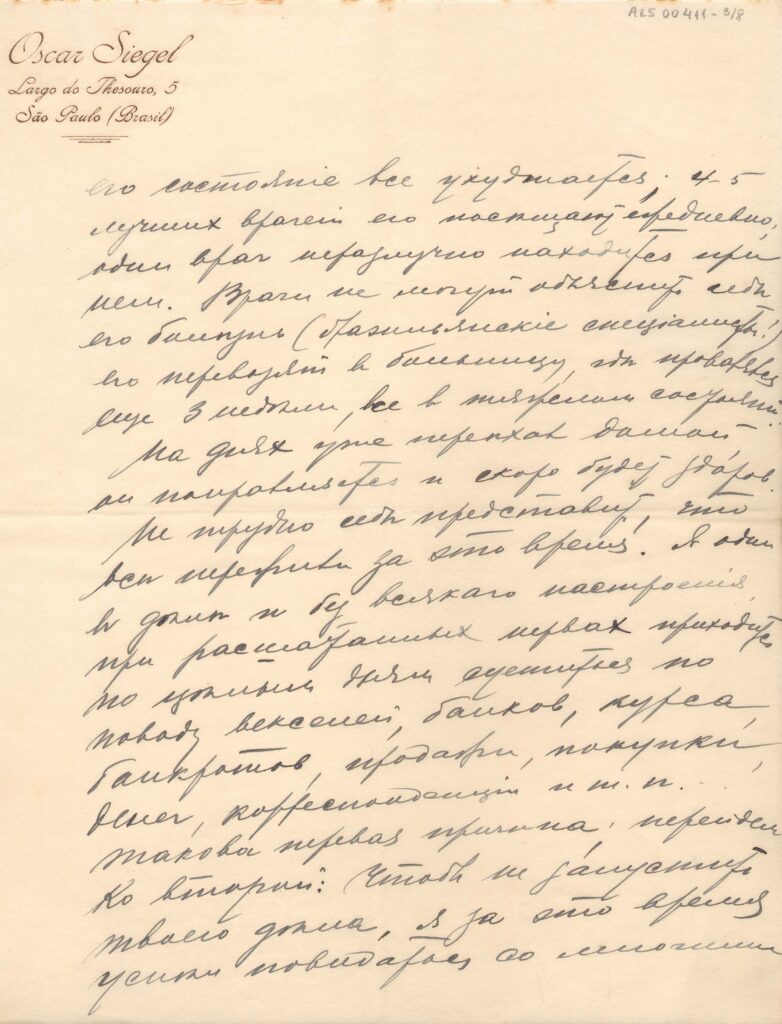 ALS 00411-3/8
Oscar Siegel
Largo do Thesouro, 5
São Paulo (Brasil)
его состояніе все ухудшается; 4-5
лучших врачей его посещают ежедневно,
один врач неразлучно находится при
нем. Врачи не могут объяснить себѣ
его болѣзнь (бразильянскіе спеціалисты!)
его перевозят в больницу, гдѣ провалялся
еще 3 недѣли, все в тяжелом состояніи.
На днях уже переѣхал домой
он поправляется и скоро будет здоров.
Не трудно себѣ представить, что
всѣ пережили за это время. Я один
в домѣ и без всякаго настроенія,
при расшатанных нервах приходится
по цѣлым дням суетиться по
поводу векселей, банков, курса,
банкротов, продажи, покупки,
денег, корреспонденціи и т. п...
Такова первая причина; перейдем
ко второй: Чтобы не запустить
твоего дѣла, я за это время
успѣл повидаться со многими